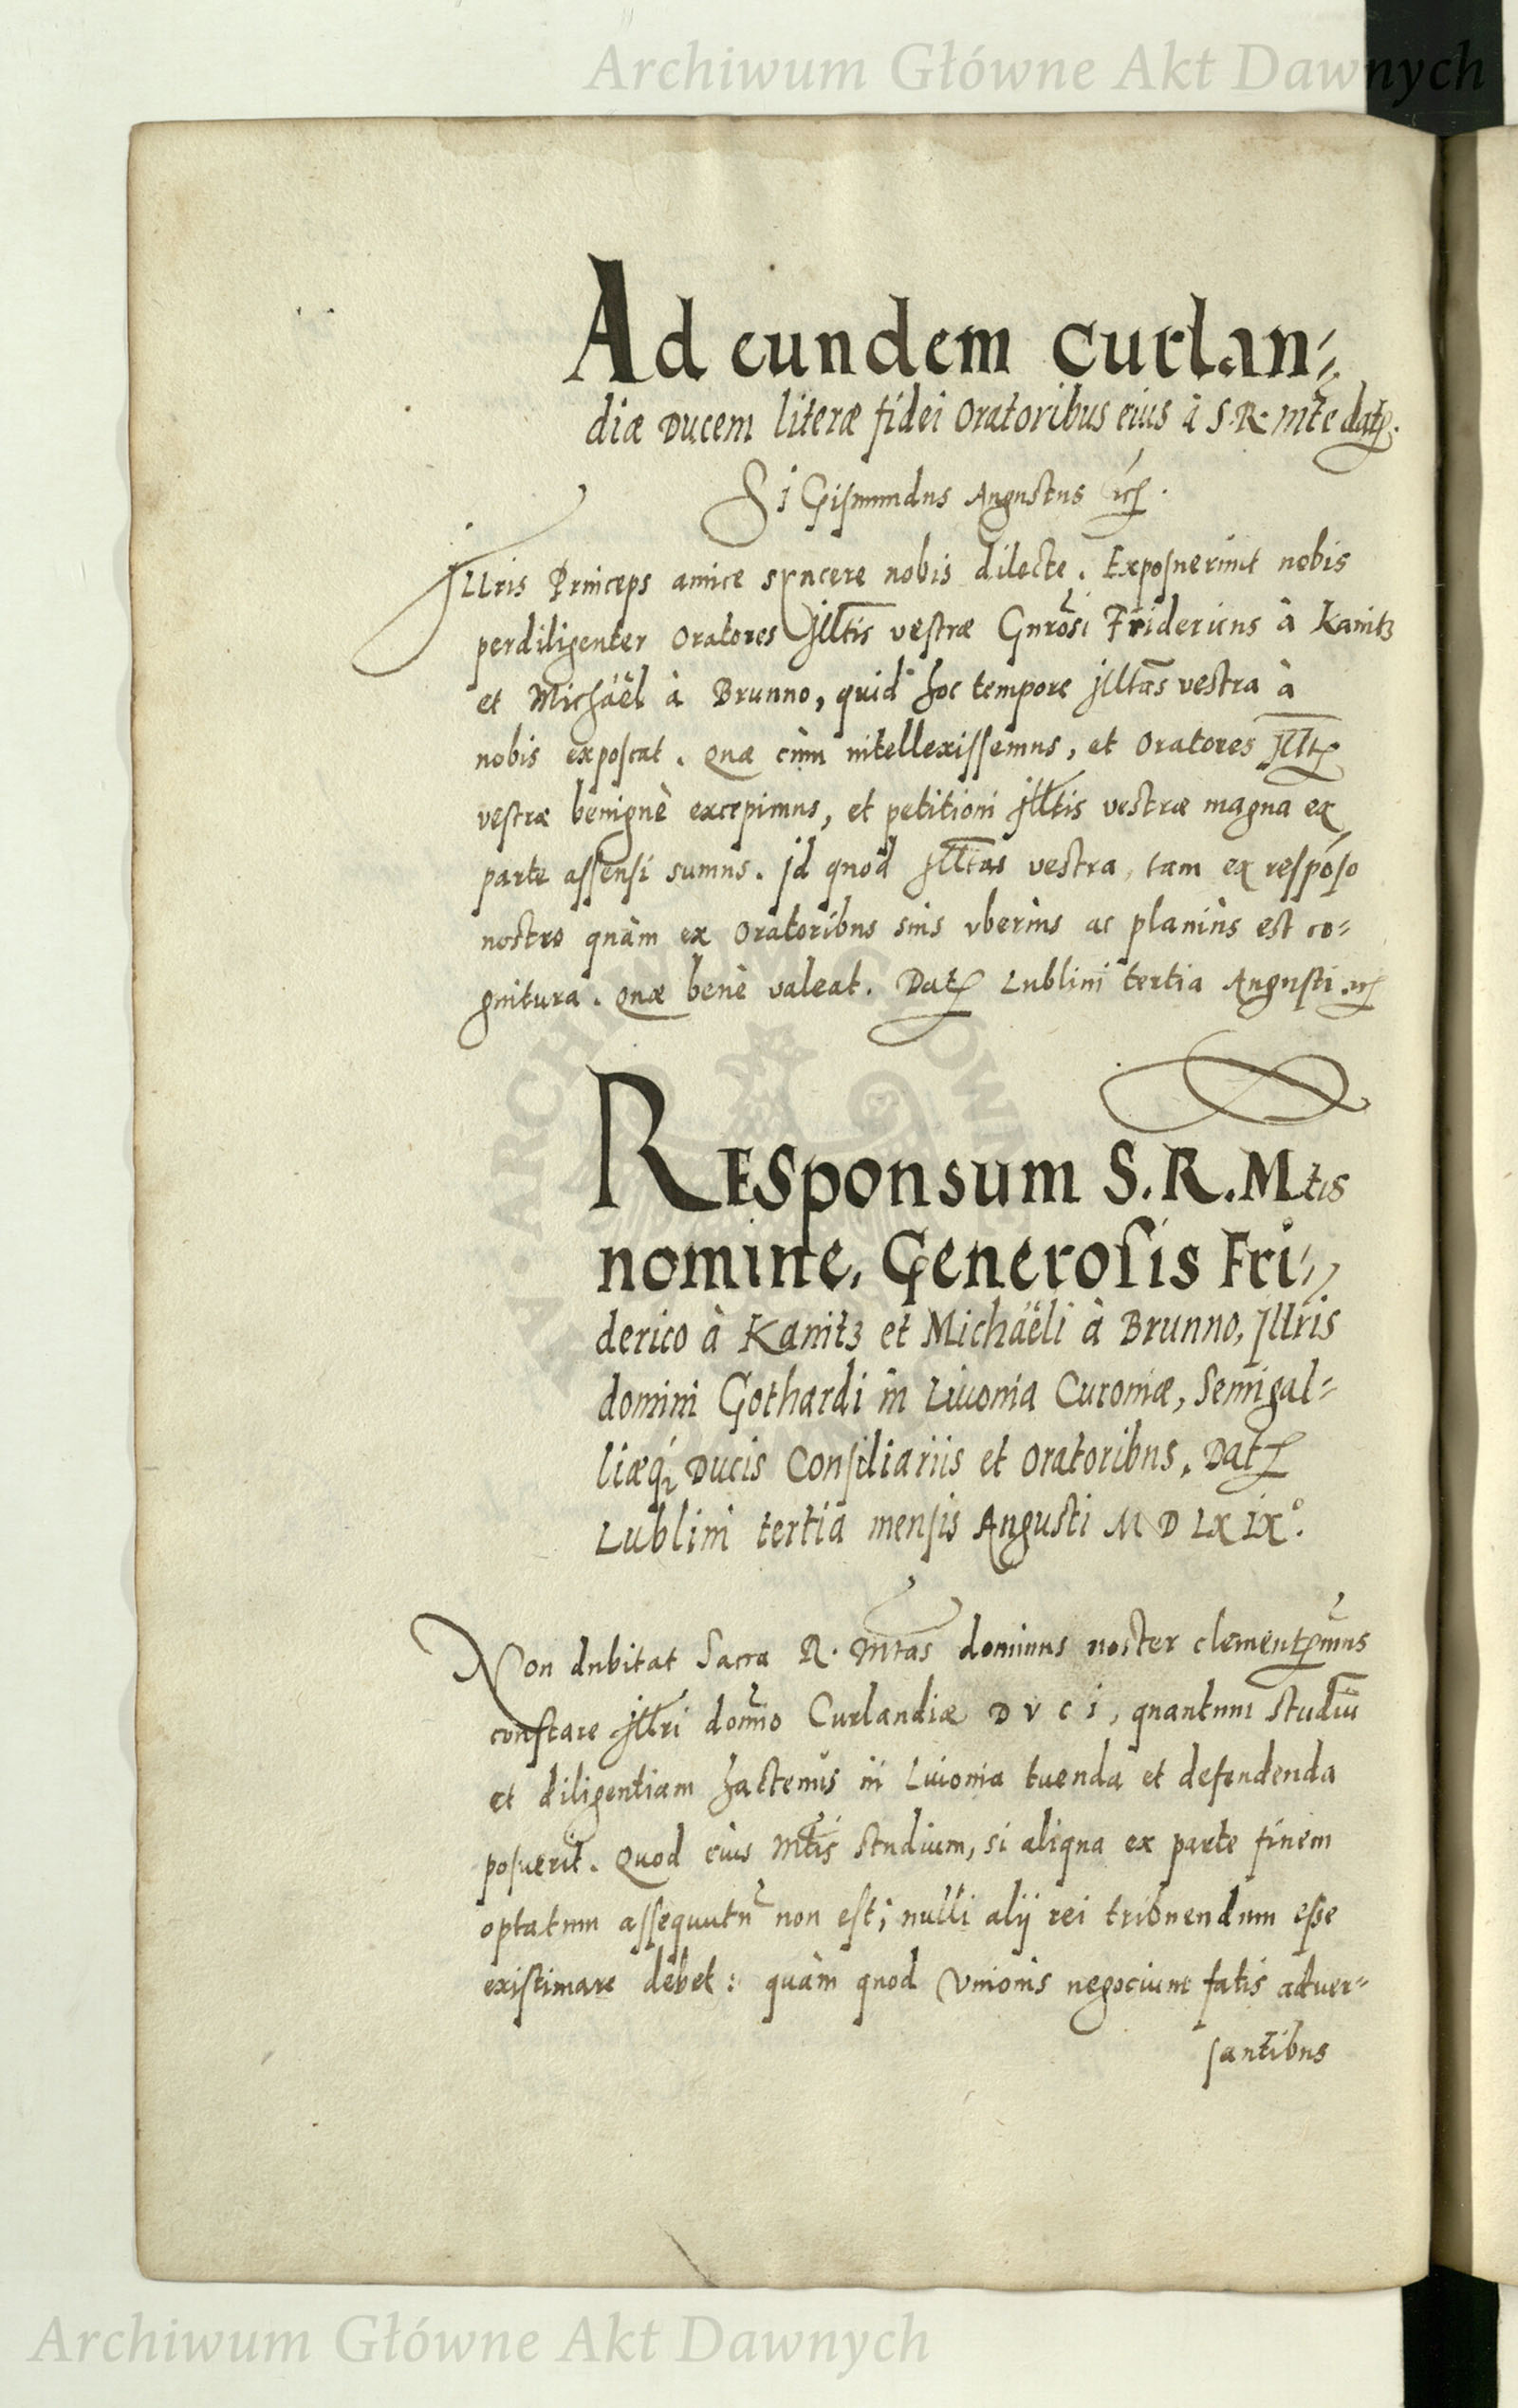 Archiwum Główne Akt Dawnych
Ad eundem Curlan=
diæ Ducem literæ fidei Oratoribus eius à S. R. Mte datę.
SiGismundus Augustus etc.
Illris Princeps amice syncere nobis dilecte. Exposuerunt nobis
perdiligenter Oratores Illtis vestræ Gnrosi Fridericus à Kanitz
et Michaël à Brunno, quid hoc tempore Illtas vestra à
nobis exposcat. Quæ cùm intellexissemus, et Oratores Illt
vestræ benignè excepimus, et petitioni Illtis vestræ magna ex
parte assensi sumus. Id quod Illtas vestra, tam ex respōso
nostro quàm ex Oratoribus suis vberius ac planius est co=
gnitura. Quæ benè valeat. Dat Lublini tertia Augusti etc
Responsum S. R. Mtis
nomine, Generosis Fri=
derico à Kanitz et Michaëli à Brunno, Illris
domini Gothardi in Liuonia Curoniæ, Semigal=
liæq; Ducis Consiliariis et Oratoribus, Dat
Lublini tertia mensis Augusti M D LX IX°.
Non dubitat Sacra R. Mtas dominus noster clementmus
constare Illri domno Curlandiæ D V C I, quantum studiū
et diligentiam hactenùs in Liuonia tuenda et defendenda
posuerit. Quod eius Mtis studium, si aliqua ex parte finem
optatum assequutū non est; nulli alij rei tribuendum esse
existimare debet: quàm quod Vnionis negocium fatis aduer=
santibus
Archiwum Główne Akt Dawnych